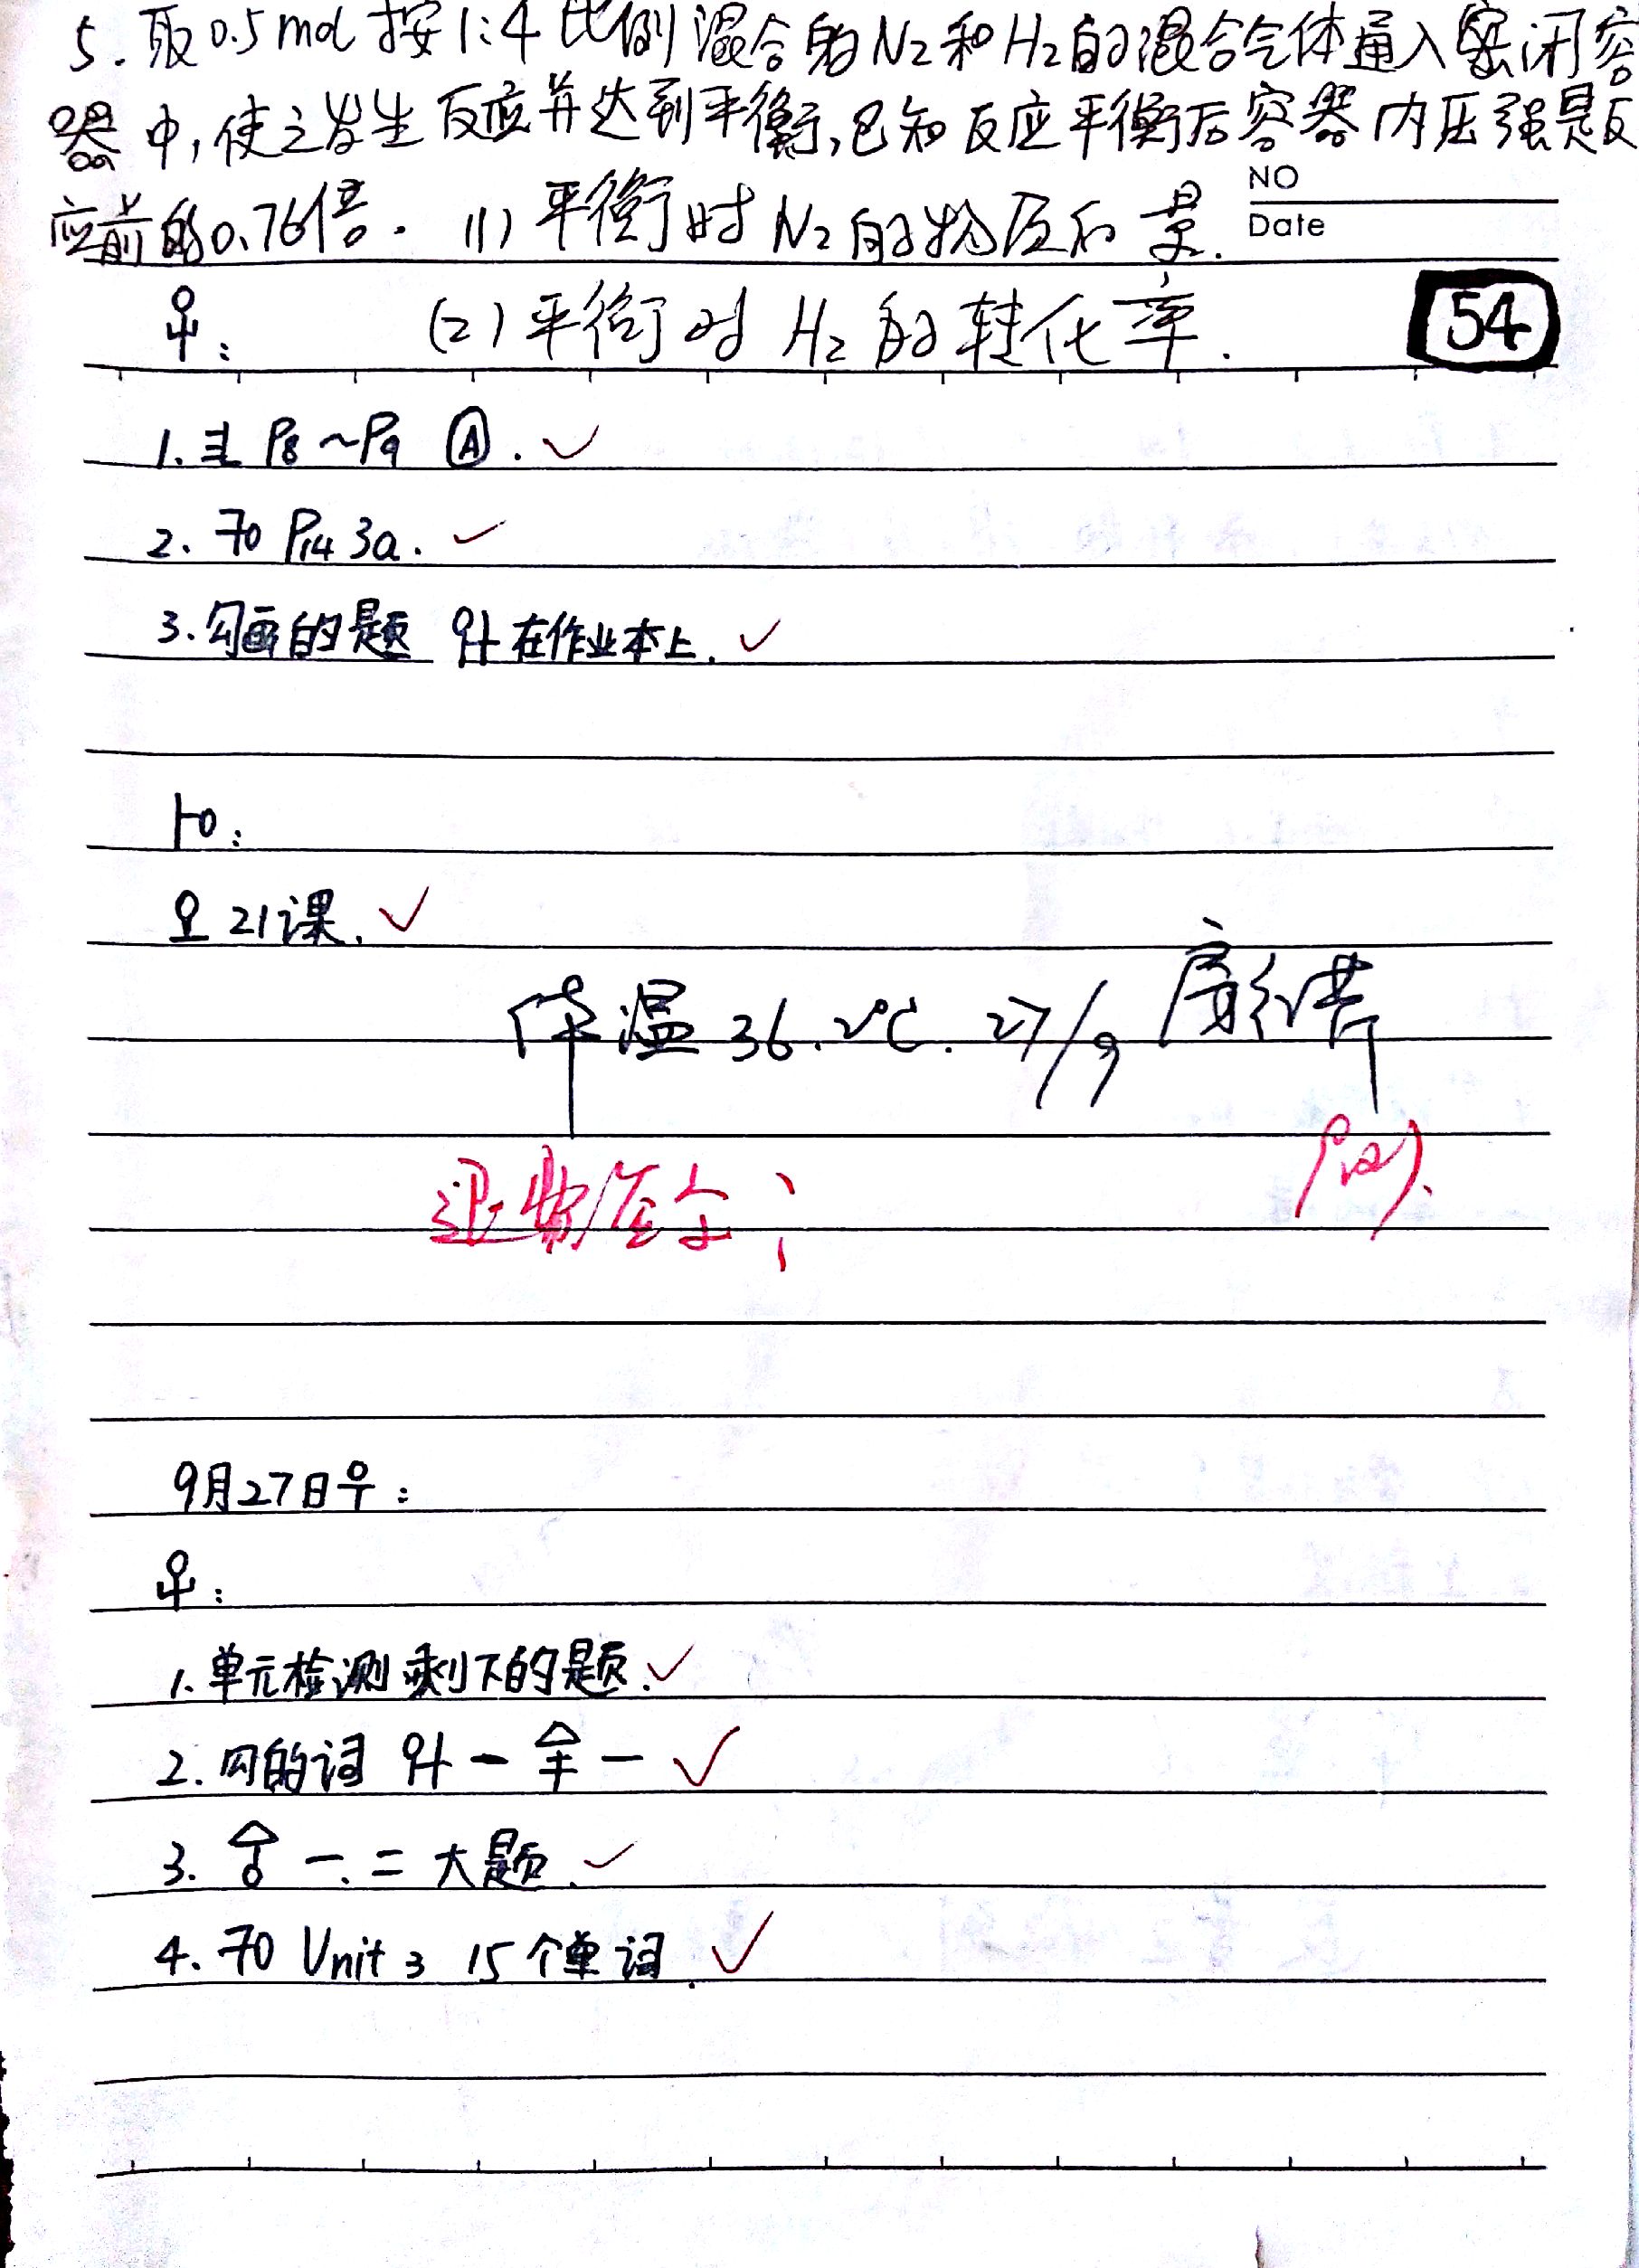 5.取0.5mol按1:4比例混合的N2和H2的混合气体通入密闭容
器中,使之发生反应并达到平衡,已知反应平衡后容器内压强是反
应前的0.76倍. (1)平衡时N2的物质的量.
NO
Date
(2)平衡时H2的转化率.
54
1. P8~P9 Ⓐ. ✓
2. P14 3a. ✓
3.勾画的题 在作业本上. ✓
21课. ✓
体温36.2℃. 27/9
9月27日
1.单元检测剩下的题. ✓
2.勾的词 一 一 ✓
3. 一.二大题. ✓
4. Unit 3 15个单词. ✓